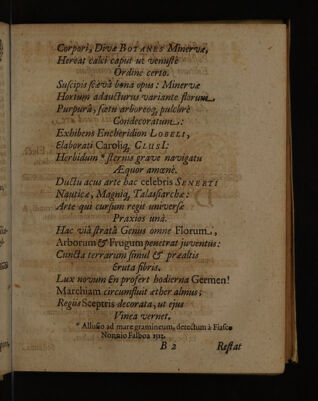 Corpori, Divæ BOTANES Minervæ,
Hereat calci caput ut venustè
Ordine certo.
Suscipis scævâ bona opus: Minervæ
Hortum adaucturus variante florum
Purpurâ, fœtu arboreoq; pulchrè
Condecoratum:
Exhibens Encheridion LOBELI,
Elaborati Caroliq; CLUSI:
Herbidum * sternis grave navigatu
Æquor amœnè.
Ductu acus arte hac celebris SENERTI
Nauticæ, Magniq; Talassarchæ:
Arte qui cursum regit universæ
Praxios unà.
Hac viâ stratâ Genus omne Florum,
Arborum & Frugum penetrat juventus:
Cuncta terrarum simul & præaltis
Eruta fibris.
Lux novum En profert hodierna Germen!
Marchiam circumfluit æther almus;
Regiis Sceptris decorata, ut ejus
Vinea vernet.
* Allusio ad mare gramineum, detectum à Fiasco
Nonnio Falboa
B 2 Restat